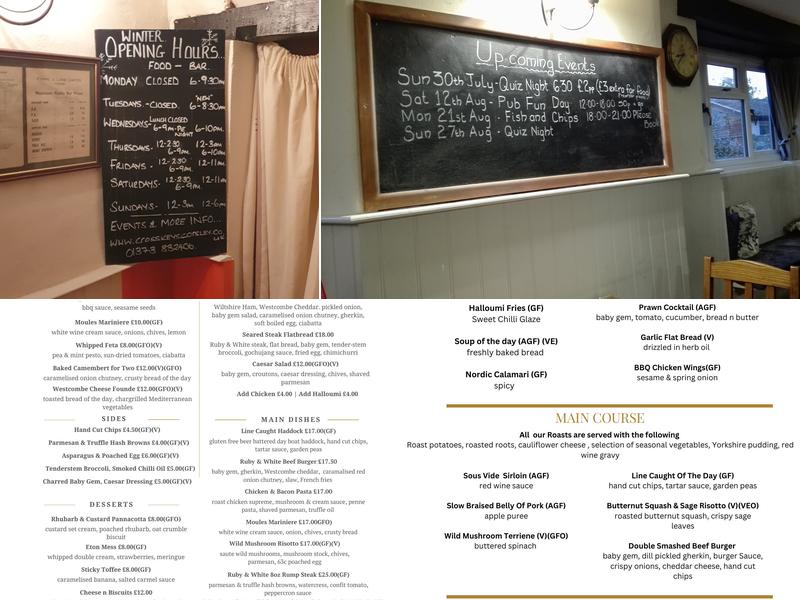 WINTER
OPENING HOURS...
FOOD - BAR
MONDAY CLOSED 6-9:30pm
"NEW"
TUESDAYS - CLOSED. 6-8:30pm
WEDNESDAYS - LUNCH CLOSED
6-9pm - PIE NIGHT 6-10pm
THURSDAYS - 12-2:30 12-3pm
6-9pm 6-10pm
FRIDAYS - 12-2:30 12-11pm
6-9pm
SATURDAYS - 12-2:30 12-11pm
6-9pm
SUNDAYS - 12-3pm 12-6pm
EVENTS & MORE INFO...
WWW.CROSSKEYSCORSLEY.CO.UK
01373 832406
Up-coming Events
Sun 30th July - Quiz Night 6:30 £2pp (£3 extra for food)
Sat 12th Aug - Pub Fun Day 12:00-18:00
Mon 21st Aug - Fish and Chips 18:00-21:00 Please Book
Sun 27th Aug - Quiz Night
bbq sauce, seasame seeds
Moules Mariniere £10.00(GF)
white wine cream sauce, onions, chives, lemon
Whipped Feta £8.00(GFO)(V)
pea & mint pesto, sun-dried tomatoes, ciabatta
Baked Camembert for Two £12.00(V)(GFO)
caramelised onion chutney, crusty bread of the day
Westcombe Cheese Founde £12.00(GFO)(V)
toasted bread of the day, chargrilled Mediterranean
vegetables
SIDES
Hand Cut Chips £4.50(GF)(V)
Parmesan & Truffle Hash Browns £4.00(GF)(V)
Asparagus & Poached Egg £6.00(GF)(V)
Tenderstem Broccoli, Smoked Chilli Oil £5.00(GF)
Charred Baby Gem, Caesar Dressing £5.00(GF)(V)
DESSERTS
Rhubarb & Custard Pannacotta £8.00(GFO)
custard set cream, poached rhubarb, oat crumble
biscuit
Eton Mess £8.00(GF)
whipped double cream, strawberries, meringue
Sticky Toffee £8.00(GF)
caramelised banana, salted carmel sauce
Cheese n Biscuits £12.00
Wiltshire Ham, Westcombe Cheddar. pickled onion,
baby gem salad, caramelised onion chutney, gherkin,
soft boiled egg, ciabatta
Seared Steak Flatbread £18.00
Ruby & White steak, flat bread, baby gem, tender-stem
broccoli, gochujang sauce, fried egg, chimichurri
Caesar Salad £12.00(GFO)(V)
baby gem, croutons, caesar dressing, chives, shaved
parmesan
Add Chicken £4.00 | Add Halloumi £4.00
MAIN DISHES
Line Caught Haddock £17.00(GF)
gluten free beer buttered day boat haddock, hand cut chips,
tartar sauce, garden peas
Ruby & White Beef Burger £17.50
baby gem, gherkin, Westcombe cheddar, caramalised red
onion chutney, slaw, French fries
Chicken & Bacon Pasta £17.00
roast chicken supreme, mushroom & cream sauce, penne
pasta, shaved parmesan, truffle oil
Moules Mariniere £17.00GFO)
white wine cream sauce, onion, chives, crusty bread
Wild Mushroom Risotto £17.00(GF)(V)
saute wild mushrooms, mushroom stock, chives,
parmesan, 63c poached egg
Ruby & White 8oz Rump Steak £25.00(GF)
parmesan & truffle hash browns, watercress, confit tomato,
peppercron sauce
Halloumi Fries (GF)
Sweet Chilli Glaze
Soup of the day (AGF) (VE)
freshly baked bread
Nordic Calamari (GF)
spicy
Prawn Cocktail (AGF)
baby gem, tomato, cucumber, bread n butter
Garlic Flat Bread (V)
drizzled in herb oil
BBQ Chicken Wings(GF)
sesame & spring onion
MAIN COURSE
All our Roasts are served with the following
Roast potatoes, roasted roots, cauliflower cheese , selection of seasonal vegetables, Yorkshire pudding, red
wine gravy
Sous Vide Sirloin (AGF)
red wine sauce
Slow Braised Belly Of Pork (AGF)
apple puree
Wild Mushroom Terriene (V)(GFO)
buttered spinach
Line Caught Of The Day (GF)
hand cut chips, tartar sauce, garden peas
Butternut Squash & Sage Risotto (V)(VEO)
roasted butternut squash, crispy sage
leaves
Double Smashed Beef Burger
baby gem, dill pickled gherkin, burger Sauce,
crispy onions, cheddar cheese, hand cut
chips